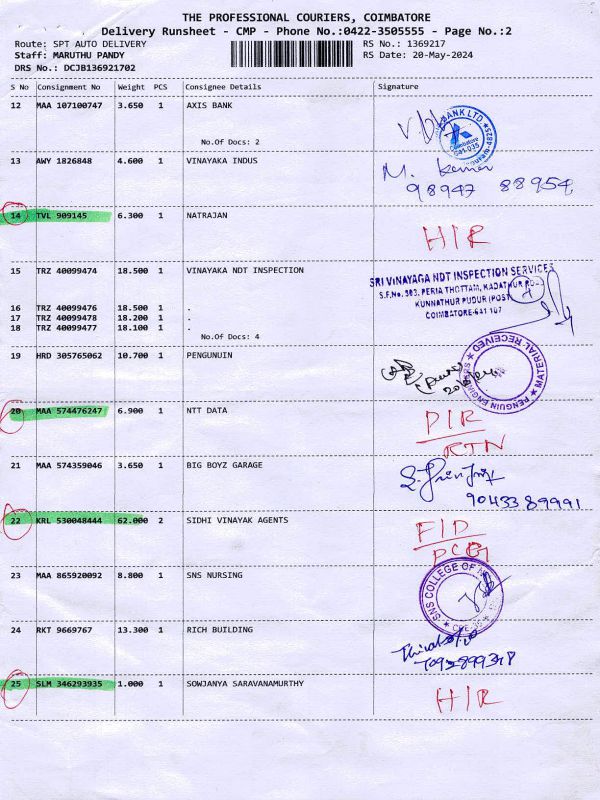 THE PROFESSIONAL COURIERS, COIMBATORE
Delivery Runsheet - CMP - Phone No.:0422-3505555 - Page No.:2
Route: SPT AUTO DELIVERY RS No.: 1369217
Staff: MARUTHU PANDY RS Date: 20-May-2024
DRS No.: DCJB136921702
S No Consignment No Weight PCS Consignee Details Signature
12 MAA 107100747 3.650 1 AXIS BANK
BANK LTD
Coimbatore
641-035
No.Of Docs: 2
13 AWY 1826848 4.600 1 VINAYAKA INDUS
M. Kumar
98947 88954
14 TVL 909145 6.300 1 NATRAJAN
H/R
15 TRZ 40099474 18.500 1 VINAYAKA NDT INSPECTION
SRI VINAYAGA NDT INSPECTION SERVICES
S.F.No. 583, PERIA THOTTAM, KADATHUR ROAD
KUNNATHUR PUDUR (POST)
COIMBATORE-641 107
16 TRZ 40099476 18.500 1 .
17 TRZ 40099478 18.200 1 .
18 TRZ 40099477 18.100 1 .
No.Of Docs: 4
19 HRD 305765062 10.700 1 PENGUNUIN
PENGUIN ENGINEERS ★ MATERIAL RECEIVED ★
20 MAA 574476247 6.900 1 NTT DATA
D/R
RTN
21 MAA 574359046 3.650 1 BIG BOYZ GARAGE
90433 89991
22 KRL 530048444 62.000 2 SIDHI VINAYAK AGENTS
F/D
23 MAA 865920092 8.800 1 SNS NURSING
SNS COLLEGE OF
24 RKT 9669767 13.300 1 RICH BUILDING
25 SLM 346293935 1.000 1 SOWJANYA SARAVANAMURTHY
H/R